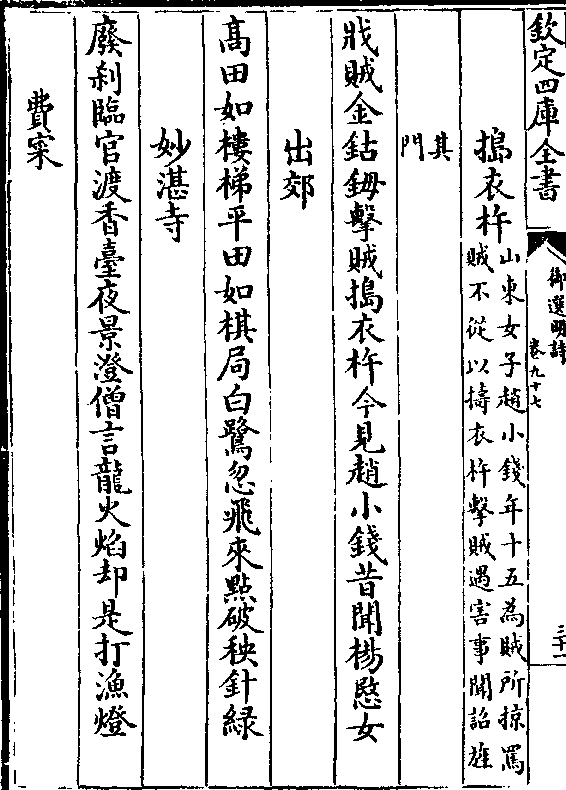 欽定四庫全書
御選明詩
卷九十七
三十一
搗衣杵
山東女子趙小錢年十五為賊所掠罵
賊不從以擣衣杵擊賊遇害事聞詔旌
其
門
戕賊金鈷鉧擊賊搗衣杵今見趙小錢昔聞楊愍女
出郊
高田如樓梯平田如棋局白鷺忽飛來點破秧針綠
妙湛寺
廢刹臨官渡香臺夜景澄僧言龍火焰却是打漁燈
費寀